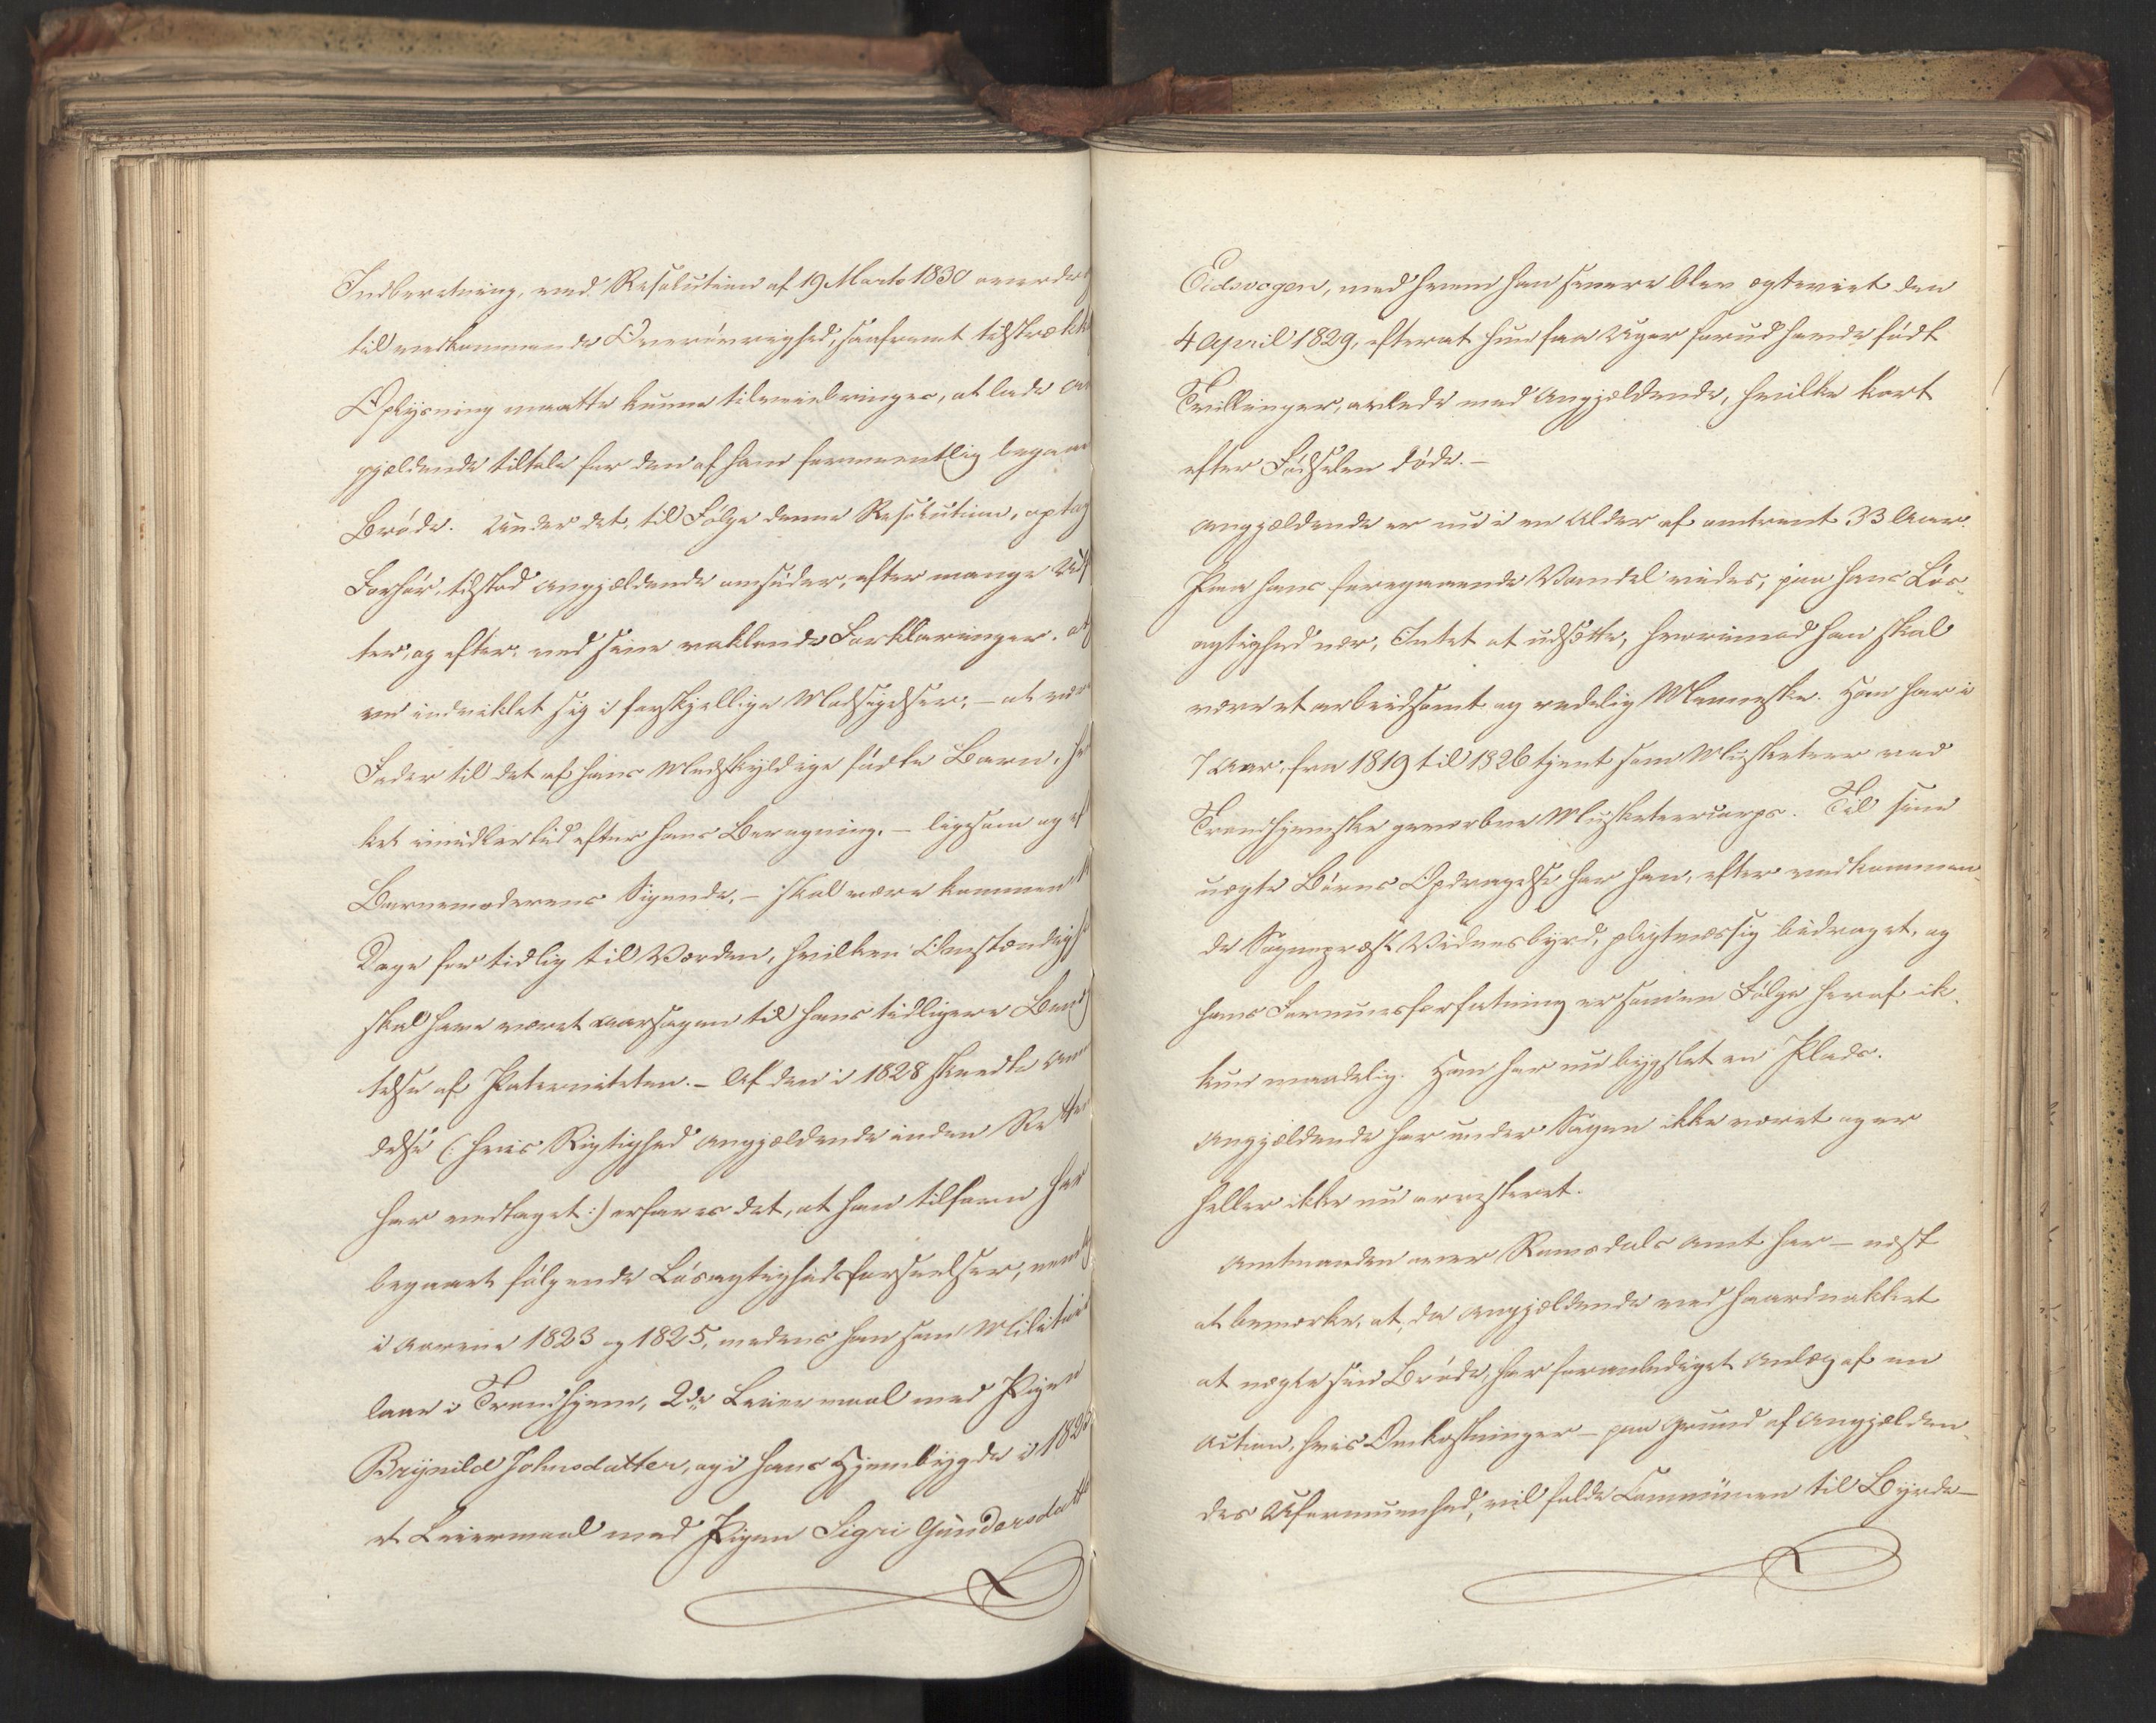 Indberetning, ved Resolution af 19 Marts 1830 overdra
til vedkommende Overøvrighed, saafremt tilstrækk
Oplysning maatte kunne tilveiebringes, at lade An
gjældende tiltale for den af ham formeentlig begaae
Brøde. Under det, til Følge denne Resolution, optag
Forhør, tilstod Angjældende omsider, efter mange Udfl
ter, og efter, ved sine vaklende Forklaringer, at
ve indviklet sig i forskjellige Modsigelser, – at være
Fader til det af hans Medskyldige fødte Barn, hvil
ket imidlertid efter hans Beregning, – ligesom og ef
Barnemoderens Sigende, – skal være kommen
Dage for tidlig til Verden, hvilken Omstændigh
skal have været Aarsagen til hans tidligere Benæg
telse af Paterniteten. – Af den i 1828 skeedte An
delse (: hvis Rigtighed Angjældende inden Rette
har vedtaget :) erfares det, at han tilforn har
begaaet følgende Løsagtighedsforseelser, neml
i Aarene 1823 og 1825, medens han som Militair
laae i Trondhjem, 2de Leiermaal med Pigen
Brynild Johnsdatter, og i hans Hjembygde i 182
et Leiermaal med Pigen Sigri Gundersdatt
Eidsvogen, med hvem han senere blev ægteviet den
4 April 1829, efterat hun faa Uger forud havde født
Tvillinger, avlede med Angjældende, hvilke kort
efter Fødselen døde. –
Angjældende er nu i en Alder af omtrent 33 Aar.
Paa hans foregaaende Vandel vides, paa hans Løs-
agtighed nær, Intet at udsætte, hvorimod han skal
være et arbeidsomt og redelig Menneske. Han har i
7 Aar, fra 1819 til 1826 tjent som Musketeer ved
Trondhjemske gevorbne Musketeercorps. Til sine
uægte Børns Opdragelse har han, efter vedkommen-
de Sognepræsts Vidnesbyrd, pligtmæssig bidraget, og
hans Formuesforfatning er som en Følge heraf ik-
kun maadelig. Han har nu bygslet en Plads.
Angjældende har under Sagen ikke været og er
heller ikke nu arresteret.
Amtmanden over Romsdals Amt har – næst
at bemærke, at, da Angjældende ved haardnakket
at nægte sin Brøde, har foranlediget Anlæg af en
Action, hvis Omkostninger – paa Grund af Angjælden-
des Uformuenhed, vil falde Communen til Byrde –